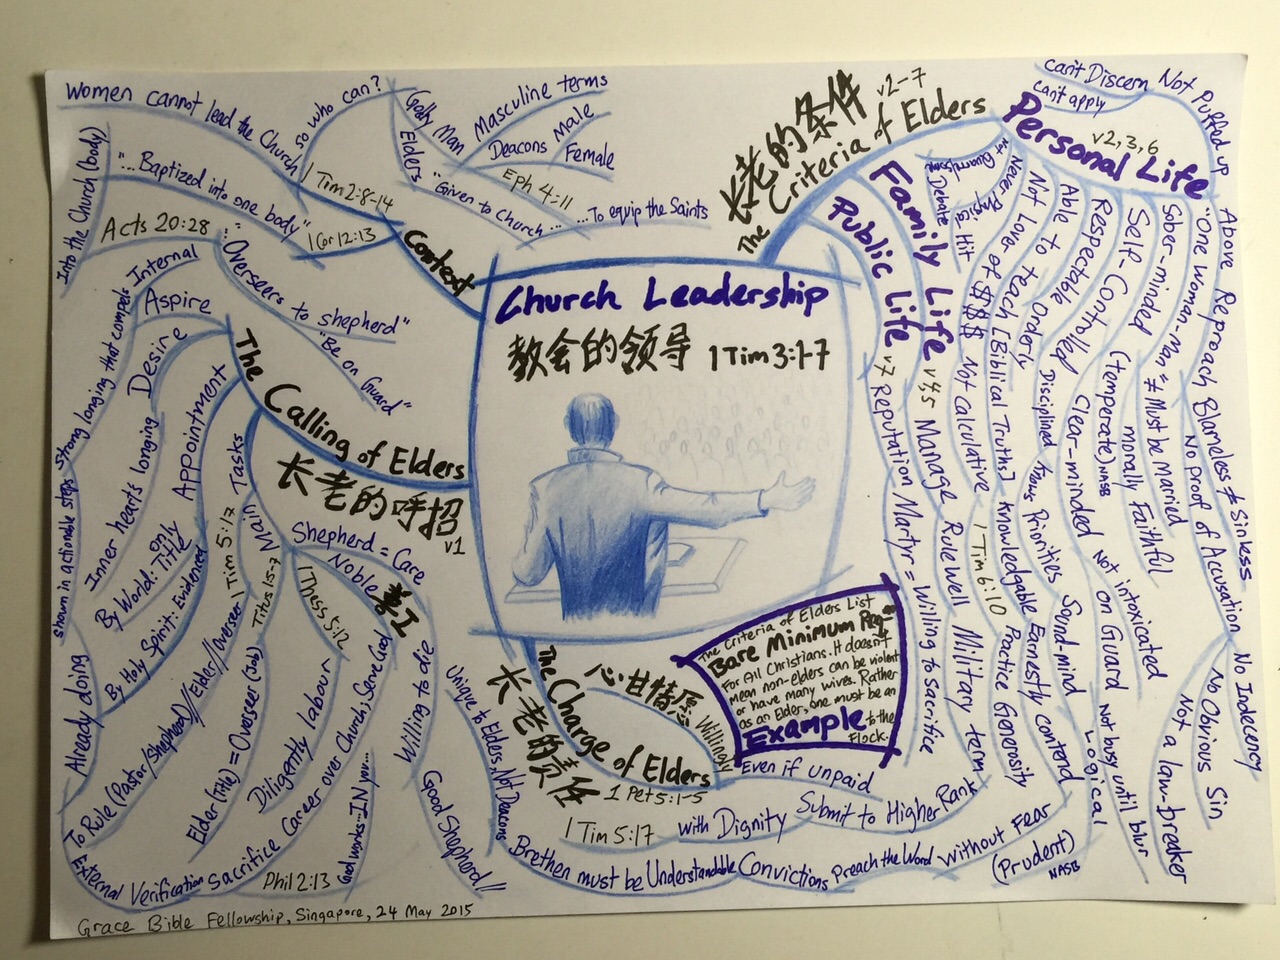 Church Leadership
教会的领导 1 Tim 3:1-7
Context
Women cannot lead the Church
1 Tim 2:8-14
so who can?
Godly Man
Elders
Masculine terms
Deacons
Male
Female
"Given to Church...
Eph 4:11
...To equip the Saints
Into the Church (body)
"...Baptized into one body"
1 Cor 12:13
Acts 20:28
"Overseers to shepherd"
"Be on Guard"
The Calling of Elders
长老的呼招
v1
Aspire
Internal
Strong longing that compels
shown in actionable steps
Desire
Inner heart's longing
Appointment
By World: Title only
By Holy Spirit: Evidenced
Already doing
Main Tasks
1 Tim 5:17
To Rule (Pastor/Shepherd)//Elder//Overseer
External Verification
Titus 1:5-7
Elder (Title) = Overseer (Job)
1 Thess 5:12
Diligently labour
Shepherd = Care
Noble
善工
Sacrifice Career over Church, Serve God
Phil 2:13
Good works...IN you...
Willing to die
Good Shepherd!!
Unique to Elders, Not Deacons
The Charge of Elders
长老的责任
心甘情愿 Willingly
1 Pet 5:1-5
Even if unpaid
1 Tim 5:17
with Dignity
Submit to Higher Rank
Brethen must be Understandable
Convictions
Preach the Word
Without Fear
(Prudent) NASB
The Criteria of Elders List
Bare Minimum Req-
For All Christians. It doesn't
mean non-elders can be violent
or have many wives. Rather
as an Elder, one must be an
Example to the
Flock.
长老的条件 v2-7
The Criteria of Elders
Public Life v7
Reputation
Martyr = Willing to Sacrifice
Family Life v4,5
Manage
Rule Well
Military term
Personal Life
v2,3,6
Debate
Not Quarrelsome
Never Physical Hit
Not Lover of $$$$
Not calculative
1 Tim 6:10
Practice Generosity
Able to teach [Biblical Truths]
Knowledgable
Earnestly contend
Respectable
Orderly
Disciplined
Knows Priorities
Sound-mind
Logical
Self-Controlled
Clear-minded
Not on Guard
Not busy until blur
Sober-minded
(temperate) NASB
Not intoxicated
"One woman-man"
≠ Must be married
morally Faithful
Above Reproach
Blameless ≠ Sinless
No proof of Accusation
No Indecency
No Obvious Sin
Not a law-breaker
Not Puffed up
can't Discern
can't apply
Grace Bible Fellowship, Singapore, 24 May 2015